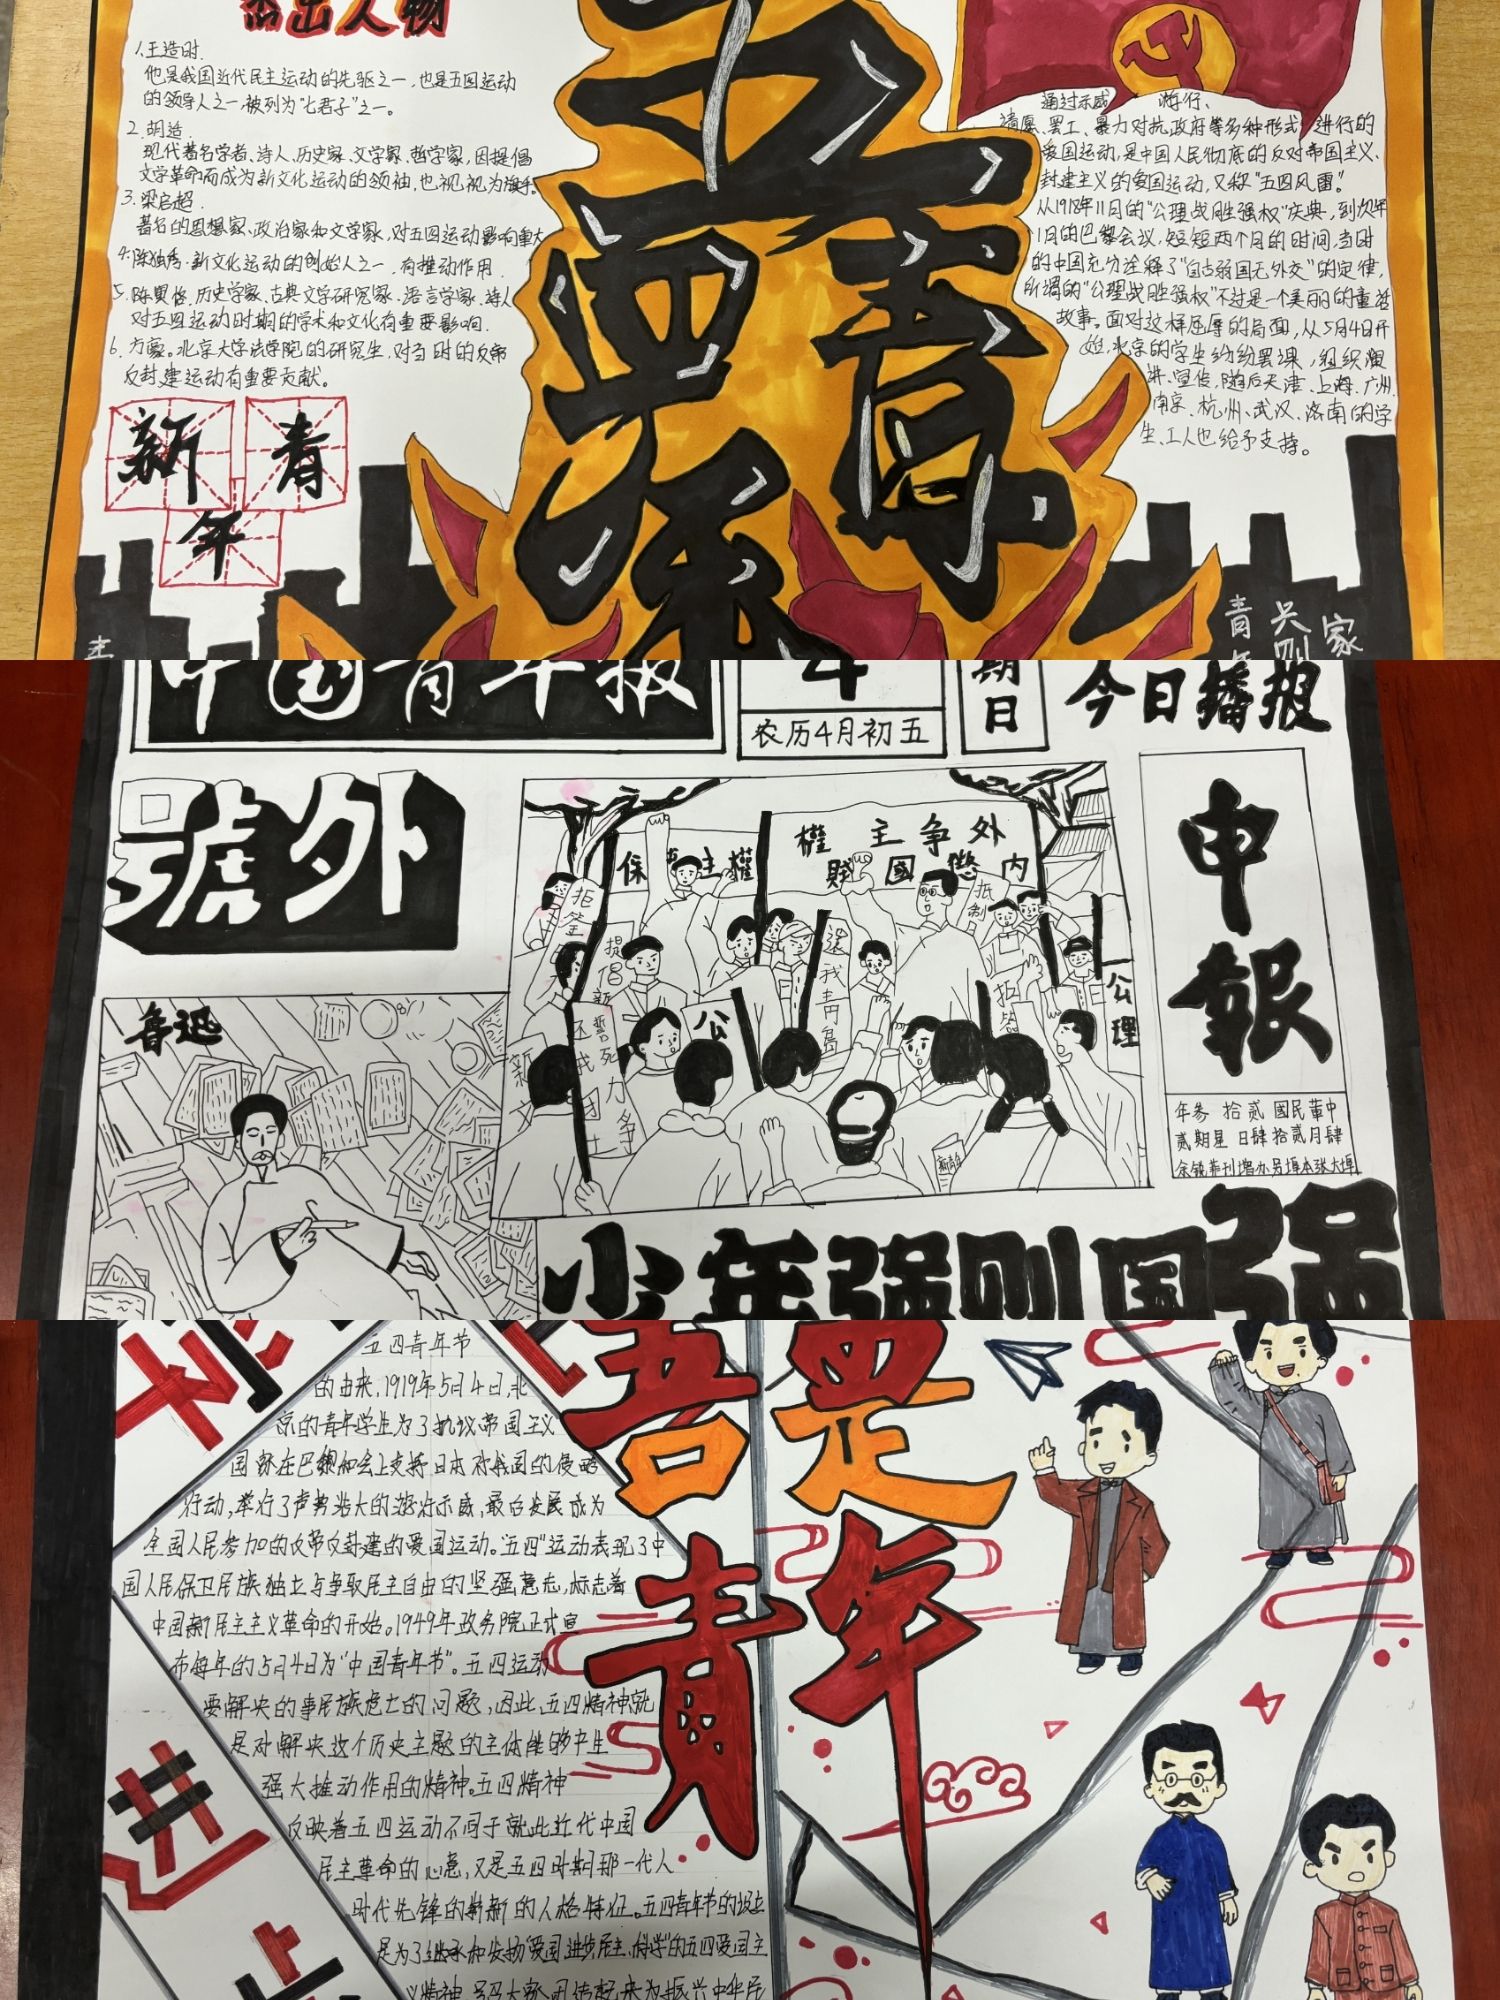 杰出人物
1.王造时.
他是我国近代民主运动的先驱之一,也是五四运动
的领导人之一,被列为"七君子"之一。
2.胡适.
现代著名学者、诗人、历史家、文学家、哲学家,因提倡
文学革命而成为新文化运动的领袖,也视视为旗手。
3.梁启超.
著名的思想家、政治家和文学家,对五四运动影响重大
4.陈独秀.新文化运动的创始人之一,有推动作用.
5.陈寅恪,历史学家、古典文学研究家、语言学家、诗人
对五四运动时期的学术和文化有重要影响.
6.方豪。北京大学法学院的研究生,对当时的反帝
反封建运动有重要贡献。
新青
年
五四
青
年
通过示威 游行、
请愿、罢工、暴力对抗政府等多种形式进行的
爱国运动,是中国人民彻底的反对帝国主义、
封建主义的爱国运动,又称"五四风雷"。
从1918年11月的"公理战胜强权"庆典,到次年
1月的巴黎会议,短短两个月的时间,当时
的中国充分诠释了"自古弱国无外交"的定律,
所谓的"公理战胜强权"不过是一个美丽的童话
故事。面对这样屈辱的局面,从5月4日开
始,北京的学生纷纷罢课,组织演
讲、宣传,随后天津、上海、广州、
南京、杭州、武汉、济南的学
生、工人也给予支持。
青 兴 家
中国青年报
4
农历4月初五
期
日
今日播报
號外
魯迅
保 主權
權主争外
賊國懲内
拒签
提倡新
誓死力争
还我国土
還我青島
抵制
公
公理
新青年
申
報
年叁拾贰國民華中
贰期星日肆拾贰月肆
少年强则国强
五四青年节
的由来,1919年5月4日,北
京的青年学生为了抗议帝国主义
国家在巴黎和会上支持日本对我国的侵略
行动,举行了声势浩大的游行示威,最台发展成为
全国人民参加的反帝反封建的爱国运动。"五四"运动表现了中
国人民保卫民族独立与争取民主自由的坚强意志,标志着
中国新民主主义革命的开始。1949年政务院正式宣
布每年的5月4日为"中国青年节"。五四运动
要解央的事民族危亡的问题,因此,五四精神就
是对解央这个历史主题的主体能够产生
强大推动作用的精神。五四精神
反映着五四运动不同于就此近代中国
民主革命的心意,又是五四时期那一代人
时代先锋的崭新的人格特征。五四青年节的设立
是为了继承和发扬"爱国进步民主、科学"的五四爱国主
吾
是
青
年
进
步